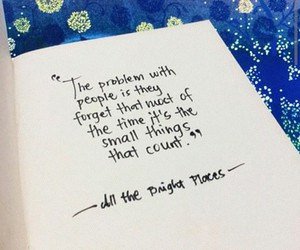 "The problem with
people is they
forget that most of
the time it's the
small things
that count."
- All the Bright Places -